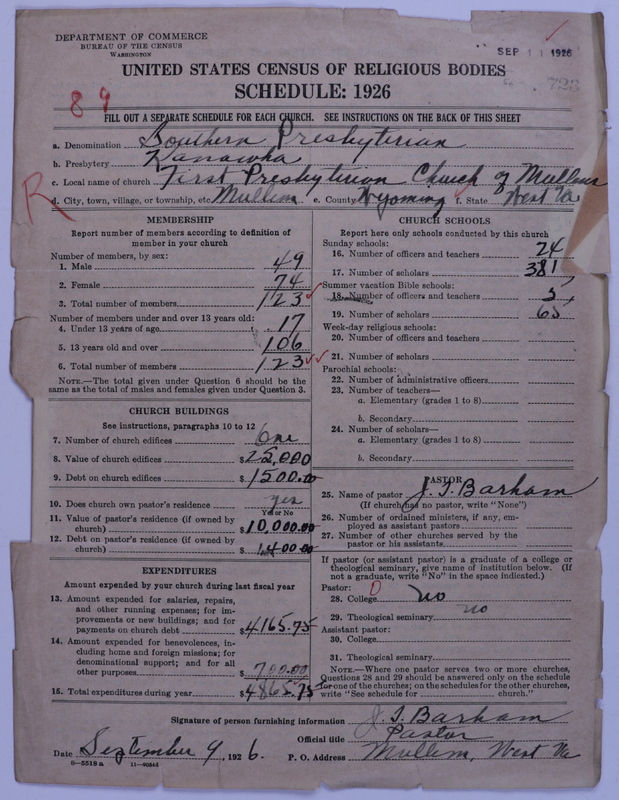 DEPARTMENT OF COMMERCE
BUREAU OF THE CENSUS
WASHINGTON
SEP 11 1926
UNITED STATES CENSUS OF RELIGIOUS BODIES
SCHEDULE: 1926
89
FILL OUT A SEPARATE SCHEDULE FOR EACH CHURCH. SEE INSTRUCTIONS ON THE BACK OF THIS SHEET
a. Denomination Southern Presbyterian
b. Presbytery Kanawha
c. Local name of church First Presbyterian Church of Mullens
R
d. City, town, village, or township, etc. Mullens e. County Wyoming f. State West Va
MEMBERSHIP
Report number of members according to definition of
member in your church
Number of members, by sex:
1. Male 49
2. Female 74
3. Total number of members 123
Number of members under and over 13 years old:
4. Under 13 years of age 17
5. 13 years old and over 106
6. Total number of members 123
NOTE.—The total given under Question 6 should be
same as the total of males and females given under Question 3.
CHURCH BUILDINGS
See instructions, paragraphs 10 to 12
7. Number of church edifices One
8. Value of church edifices $25,000
9. Debt on church edifices $1500.00
10. Does church own pastor's residence yes
Yes or No
11. Value of pastor's residence (if owned by
church) $10,000.00
12. Debt on pastor's residence (if owned by
church) $1,400.00
EXPENDITURES
Amount expended by your church during last fiscal year
13. Amount expended for salaries, repairs,
and other running expenses; for im-
provements or new buildings; and for
payments on church debt $4165.75
14. Amount expended for benevolences, in-
cluding home and foreign missions; for
denominational support; and for all
other purposes $700.00
15. Total expenditures during year $4865.75
CHURCH SCHOOLS
Report here only schools conducted by this church
Sunday schools:
16. Number of officers and teachers 24
17. Number of scholars 381
Summer vacation Bible schools:
18. Number of officers and teachers 5
19. Number of scholars 65
Week-day religious schools:
20. Number of officers and teachers
21. Number of scholars
Parochial schools:
22. Number of administrative officers
23. Number of teachers—
a. Elementary (grades 1 to 8)
b. Secondary
24. Number of scholars—
a. Elementary (grades 1 to 8)
b. Secondary
PASTOR
25. Name of pastor J. T. Barham
(If church has no pastor, write "None")
26. Number of ordained ministers, if any, em-
ployed as assistant pastors
27. Number of other churches served by the
pastor or his assistants
If pastor (or assistant pastor) is a graduate of a college or
theological seminary, give name of institution below. (If
not a graduate, write "No" in the space indicated.)
Pastor:
28. College No
29. Theological seminary no
Assistant pastor:
30. College
31. Theological seminary
NOTE.—Where one pastor serves two or more churches,
Questions 28 and 29 should be answered only on the schedule
for one of the churches; on the schedules for the other churches,
write "See schedule for church."
Signature of person furnishing information J. T. Barham
Official title Pastor
Date September 9, 1926. P. O. Address Mullens, West Va
8—5518a 11—